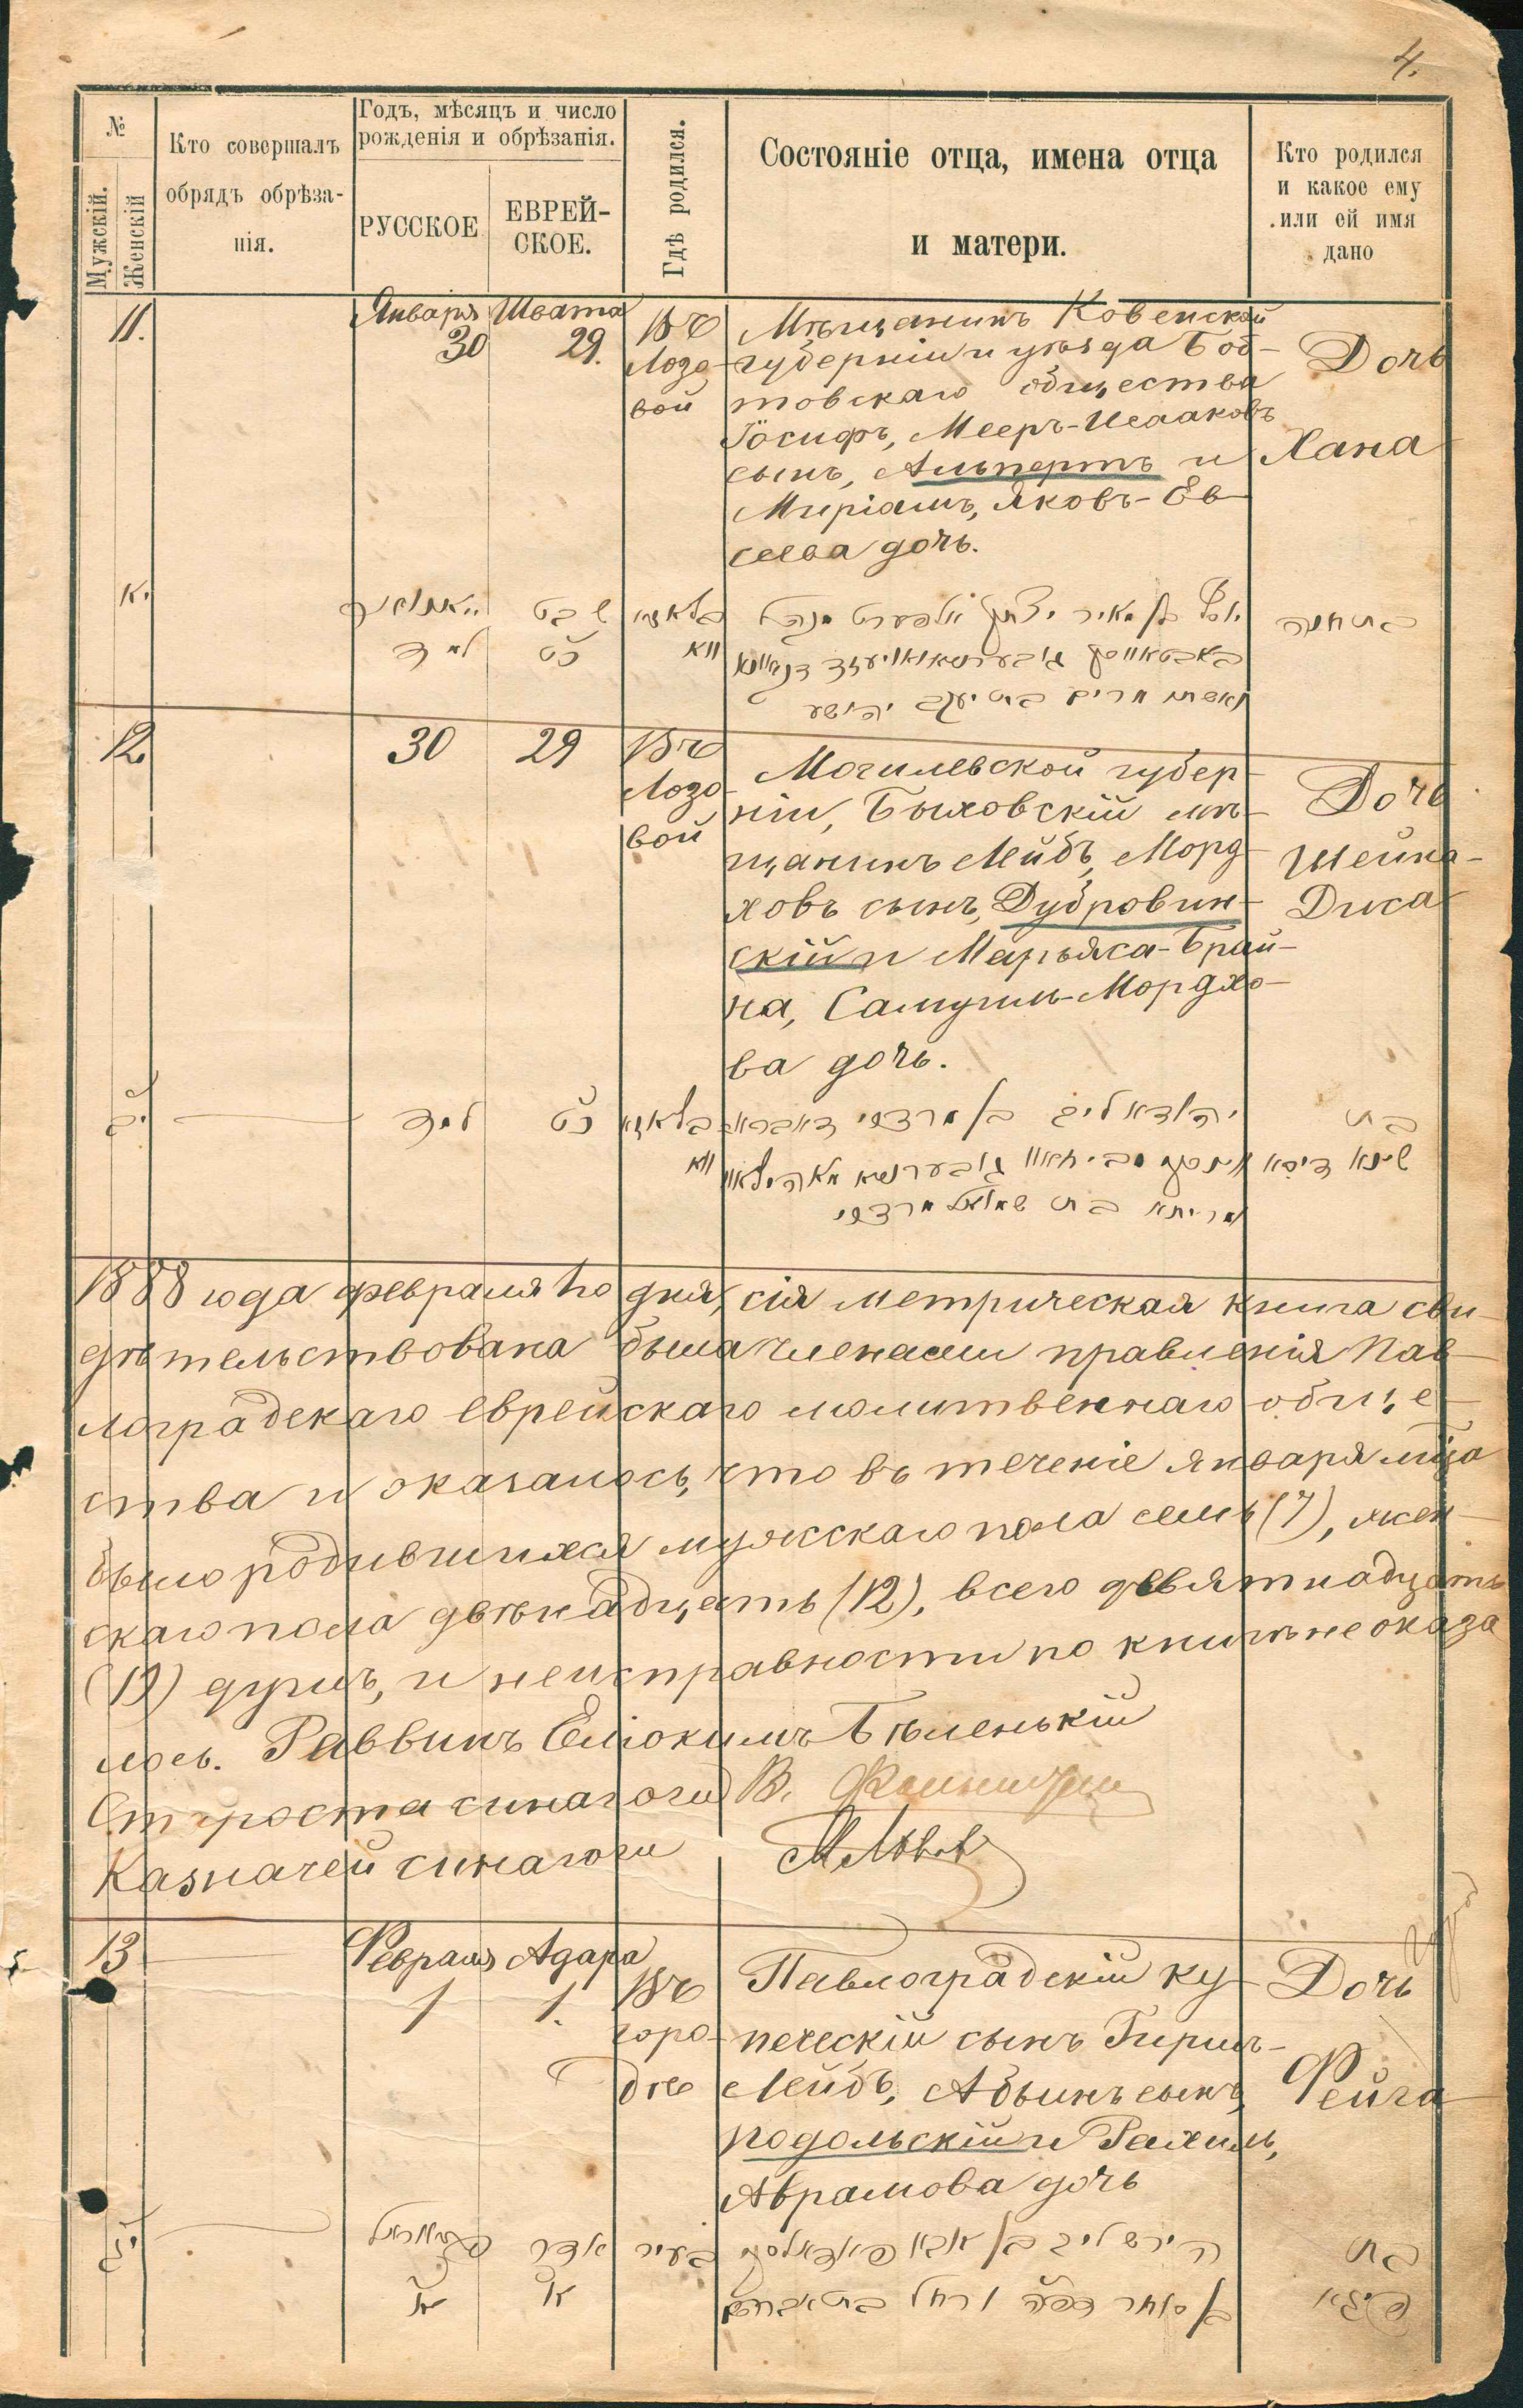 4.
№
Мужскій.
Женскій
Кто совершалъ
обрядъ обрѣза-
нія.
Годъ, мѣсяцъ и число
рожденія и обрѣзанія.
РУССКОЕ
ЕВРЕЙ-
СКОЕ.
Гдѣ родился.
Состояніе отца, имена отца
и матери.
Кто родился
и какое ему
или ей имя
дано
11.
Января
30
Швата
29.
Въ
Лозо-
вой
Мѣщанинъ Ковенской
губерніи и уѣзда Боб-
товскаго общества
Іосифъ, Мееръ-Исааковъ
сынъ, Альпертъ и
Миріамъ, Яковъ-Ев-
сеева дочь.
Дочь
Хана
שבט
כט
יוסף בן מאיר יצחק אלפערט
ואשתו מרים בת יעקב יהושע
בת חנה
12.
30
29
Въ
Лозо-
вой
Могилевской губер-
ніи, Быховскій мѣ-
щанинъ Лейбъ, Морд-
ховъ сынъ, Дубровин-
скій и Марьяса-Брай-
на, Самуил-Мордхо-
ва дочь.
Дочь
Шейна-
Диса
יב
כט
בת
שיינא דיסא
בת שמואל מרדכי
1888 года февраля 10 дня, сія метрическая книга сви-
дѣтельствована была членами правленія Пав-
лоградскаго еврейскаго молитвеннаго обще-
ства и оказалось, что въ теченіе января мца
было родившихся мужскаго пола семь (7), жен-
скаго пола двѣнадцать (12), всего девятнадцать
(19) душъ, и неисправности по книгѣ не оказа
лось. Раввинъ Еліокимъ Бѣленькій
Староста синагоги В.
Казначей синагоги
13
Февраля
1
Адара
1.
Въ
горо-
дѣ
Павлоградскій ку-
печескій сынъ Гирш-
Лейбъ, Абынъ сынъ,
Подольскій и Рахиль,
Аврамова дочь
Дочь
Фейга
יג
פעווראל
א
אדר
א
בעיר
הירש ליב בן אבא פאדאלסקי
בן סוחר ורחל בת אברהם
בת
פייגא